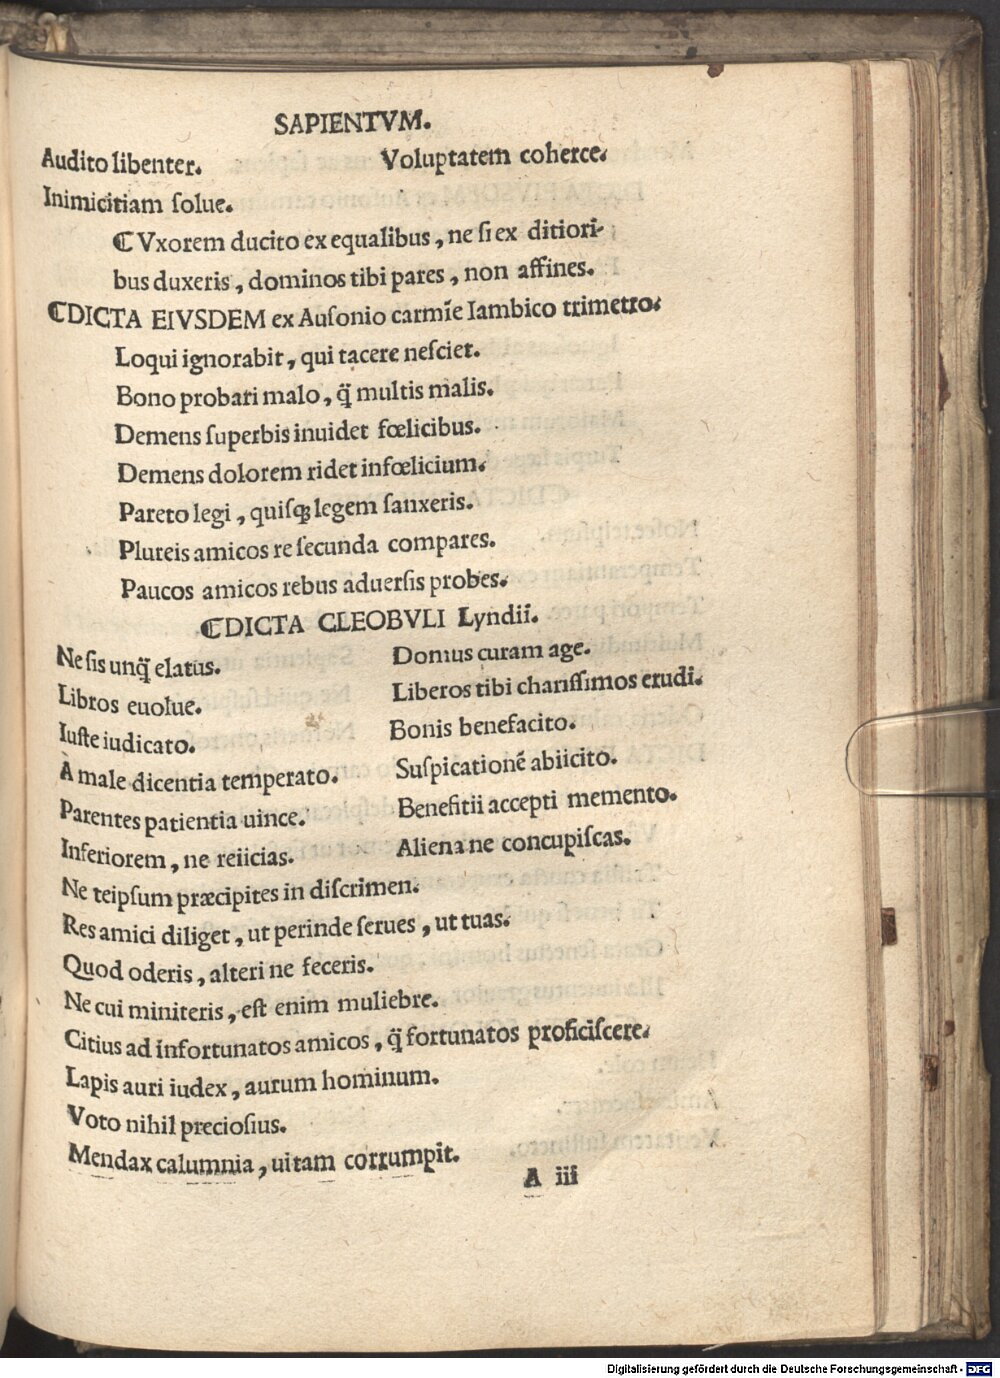 SAPIENTVM.
Audito libenter. Voluptatem coherce.
Inimicitiam ſolue.
⸿ Vxorem ducito ex equalibus, ne ſi ex ditiori-
bus duxeris, dominos tibi pares, non affines.
⸿DICTA EIVSDEM ex Auſonio carmīe Iambico trimetro.
Loqui ignorabit, qui tacere neſciet.
Bono probari malo, q̄ multis malis.
Demens ſuperbis inuidet fœlicibus.
Demens dolorem ridet infœlicium.
Pareto legi, quiſqꝫ legem ſanxeris.
Plureis amicos re ſecunda compares.
Paucos amicos rebus aduerſis probes.
⸿DICTA CLEOBVLI Lyndii.
Ne ſis unq̄ elatus. Domus curam age.
Libros euolue. Liberos tibi chariſſimos erudi.
Iuſte iudicato. Bonis benefacito.
À male dicentia temperato. Suſpicationē abiicito.
Parentes patientia uince. Benefitii accepti memento.
Inferiorem, ne reiicias. Aliena ne concupiſcas.
Ne teipſum præcipites in diſcrimen.
Res amici diliget, ut perinde ſerues, ut tuas.
Quod oderis, alteri ne feceris.
Ne cui miniteris, eſt enim muliebre.
Citius ad infortunatos amicos, q̄ fortunatos proficiſcere.
Lapis auri iudex, aurum hominum.
Voto nihil precioſius.
Mendax calumnia, uitam corrumpit.
A iii
Digitalisierung gefördert durch die Deutsche Forschungsgemeinschaft - DFG